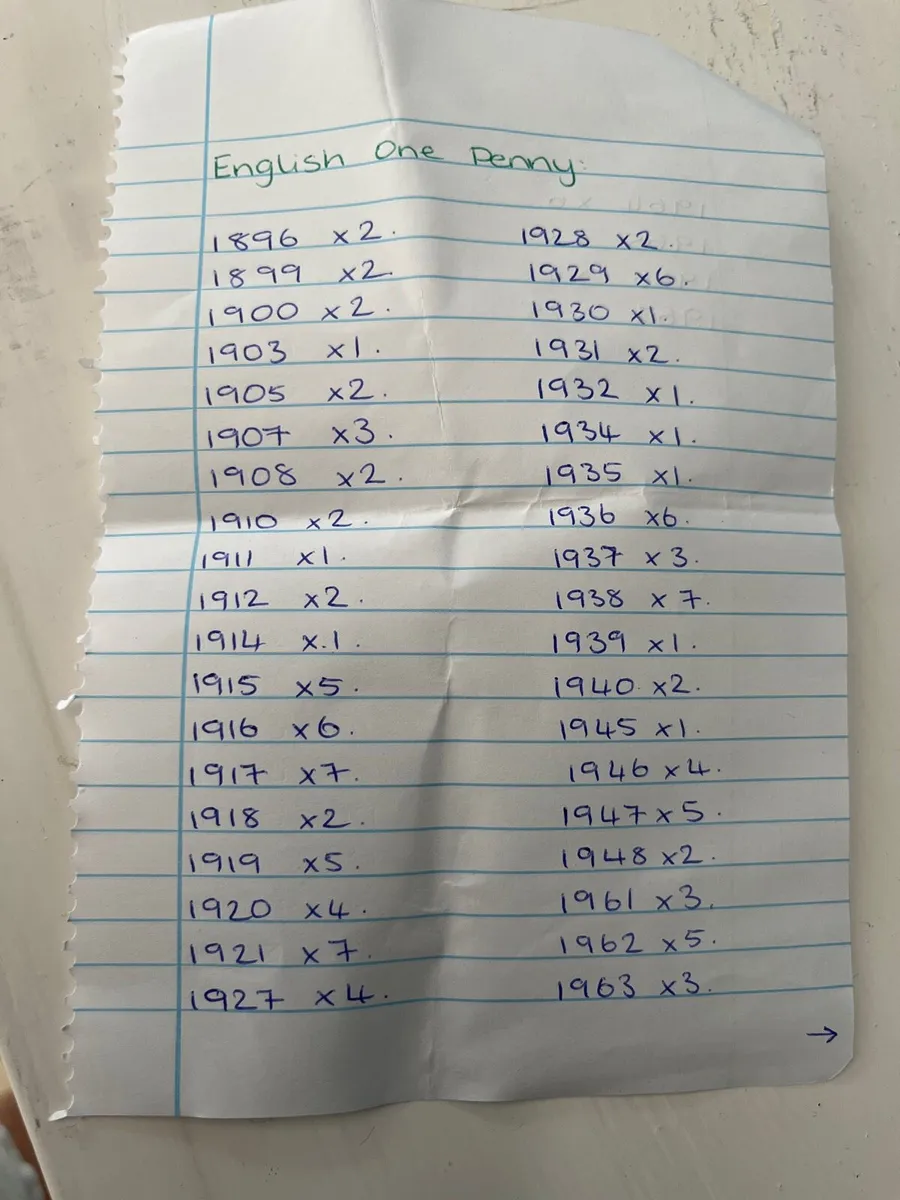 English One Penny:
1896 x2.
1899 x2.
1900 x2.
1903 x1.
1905 x2.
1907 x3.
1908 x2.
1910 x2.
1911 x1.
1912 x2.
1914 x.1.
1915 x5.
1916 x6.
1917 x7.
1918 x2.
1919 x5.
1920 x4.
1921 x7.
1927 x4.
1928 x2.
1929 x6.
1930 x1.
1931 x2.
1932 x1.
1934 x1.
1935 x1.
1936 x6.
1937 x3.
1938 x7.
1939 x1.
1940. x2.
1945 x1.
1946 x4.
1947 x5.
1948 x2.
1961 x3.
1962 x5.
1963 x3.
→